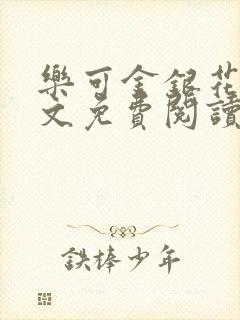 樂可金銀花
文免費閱讀
鉄棒少年